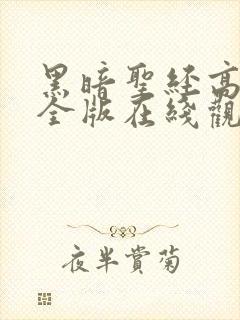 黑暗聖經高
全版在綫觀
夜半賞菊